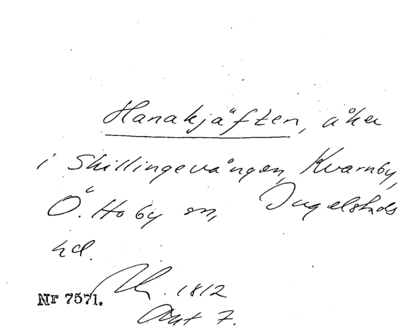 Hanakjäften, åker
i Skillingevången, Kvarnby,
Ö. Hoby sn, Ingelstads
hd.
Nr 7571. 1812
Akt 7.